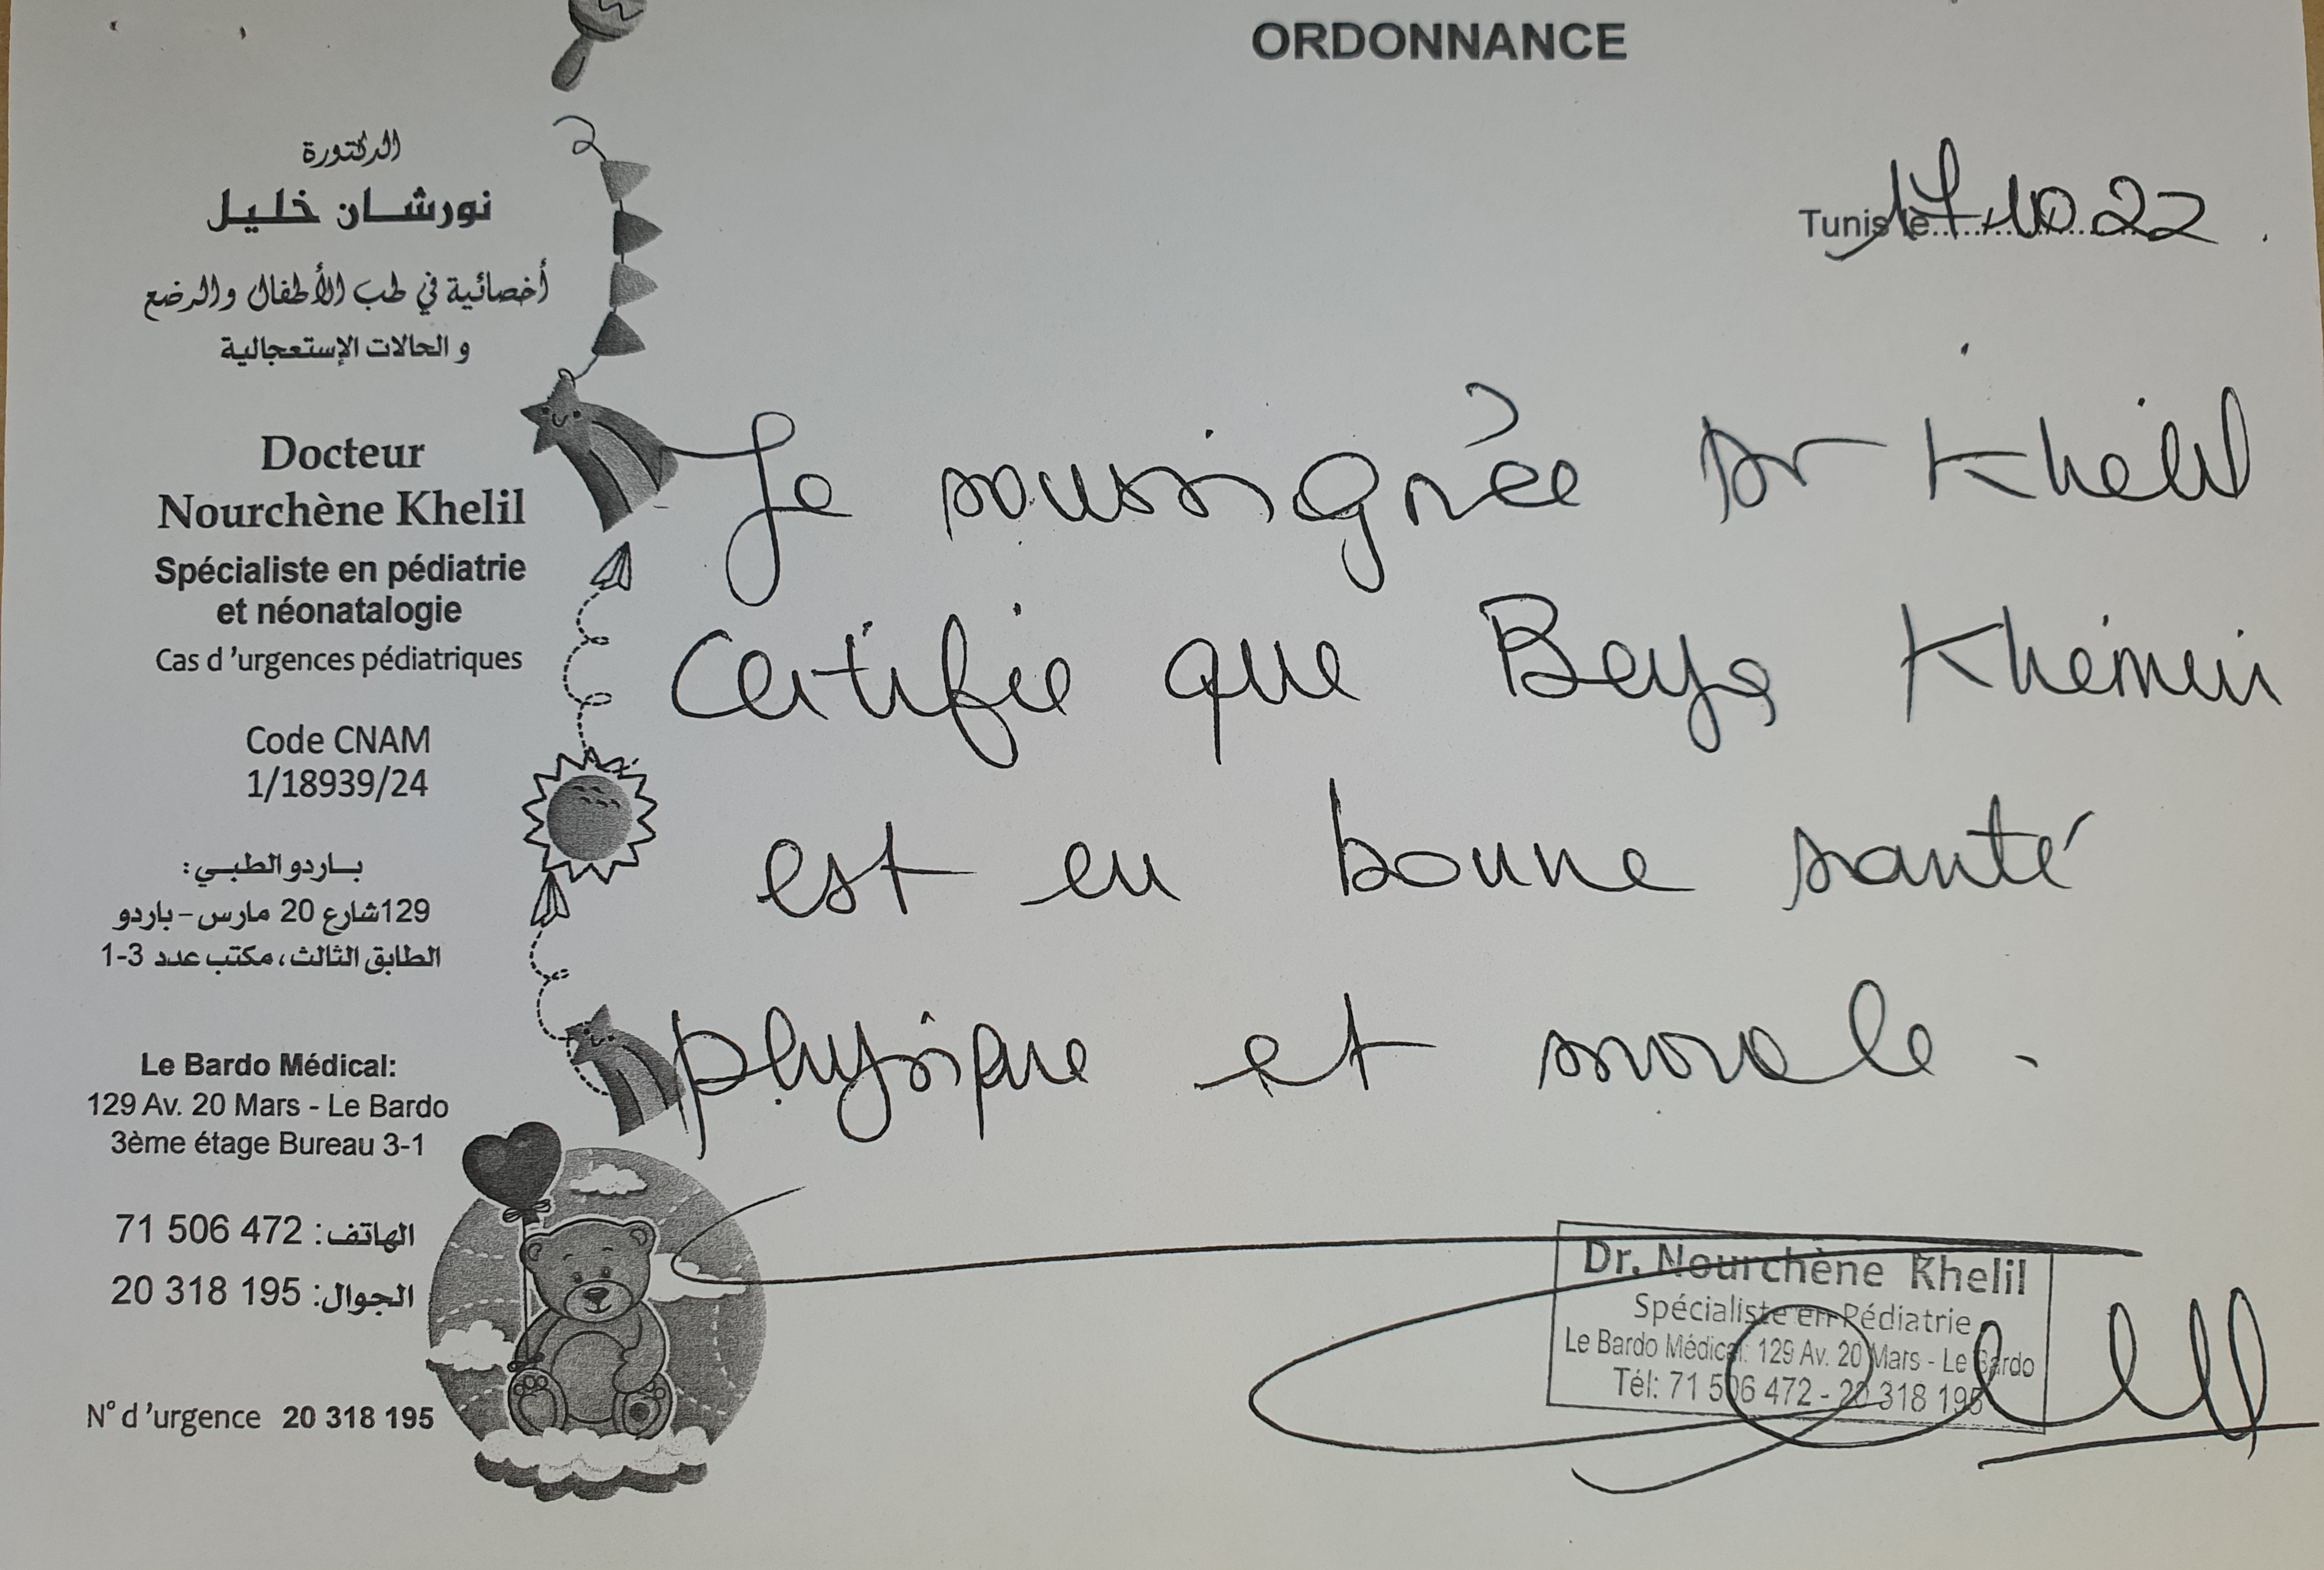 ORDONNANCE
الدكتورة
نورشان خليل
أخصائية في طب الأطفال والرضع
و الحالات الإستعجالية
Docteur
Nourchène Khelil
Spécialiste en pédiatrie
et néonatalogie
Cas d'urgences pédiatriques
Code CNAM
1/18939/24
باردو الطبي:
129شارع 20 مارس - باردو
الطابق الثالث، مكتب عدد 3-1
Le Bardo Médical:
129 Av. 20 Mars - Le Bardo
3ème étage Bureau 3-1
الهاتف: 71 506 472
الجوال: 20 318 195
N° d'urgence 20 318 195
Tunis le 17.10.22
Je soussignée Dr Khélil
certifie que Beya Khémiri
est en bonne santé
physique et morale.
Dr. Nourchène Khelil
Spécialiste en Pédiatrie
Le Bardo Médical: 129 Av. 20 Mars - Le Bardo
Tél: 71 506 472 - 20 318 195